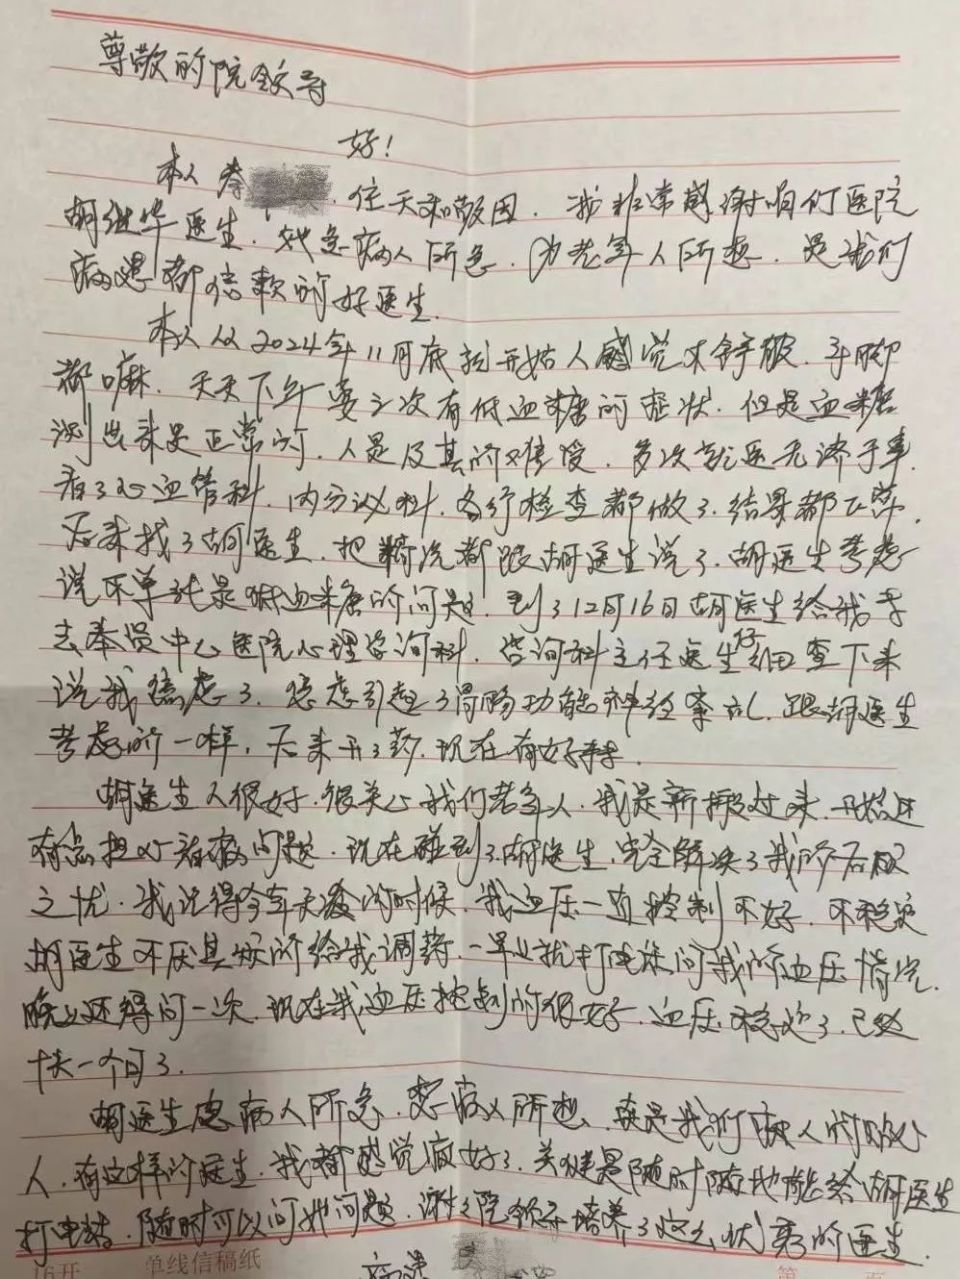 尊敬的院领导
好！
本人 李 住天和敬园．我非常感谢咱们医院
胡继华医生．她急病人所急．为老年人所想．是我们
病患都信赖的好医生．
本人从2024年11月底就开始人感觉不舒服．手脚
都麻．天天下午要三次有低血糖的症状．但是血糖
测出来是正常的．人是及其的难受．多次就医无济于事．
看了心血管科．内分泌科．各行检查都做了．结果都正常．
后来找了胡医生．把情况都跟胡医生说了．胡医生考虑
说不单纯是低血糖的问题．到了12月16日胡医生给我
去奉贤中心医院心理咨询科．咨询科主任医生仔细查下来
说我焦虑了．焦虑引起了胃肠功能神经紊乱．跟胡医生
考虑的一样，后来开了药．现在有好转．
胡医生人很好．很关心我们老年人．我是新搬过来．开始还
有点担心看病问题．现在碰到了胡医生，完全解决了我的后顾
之忧．我记得今年天凉的时候．我血压一直控制不好．不稳定
胡医生不厌其烦的给我调药．一早上就打电话问我的血压情况．
晚上还得问一次．现在我血压控制的很好．血压稳定了．已经
快一个月了．
胡医生急病人所急．想病人所想、真是我们病人的贴心
人．有这样的医生．我都感觉病好了．关键是随时随地能给胡医生
打电话．随时可以问她问题．谢谢院领导培养了这么优秀的医生．
16开 单线信稿纸 第 页